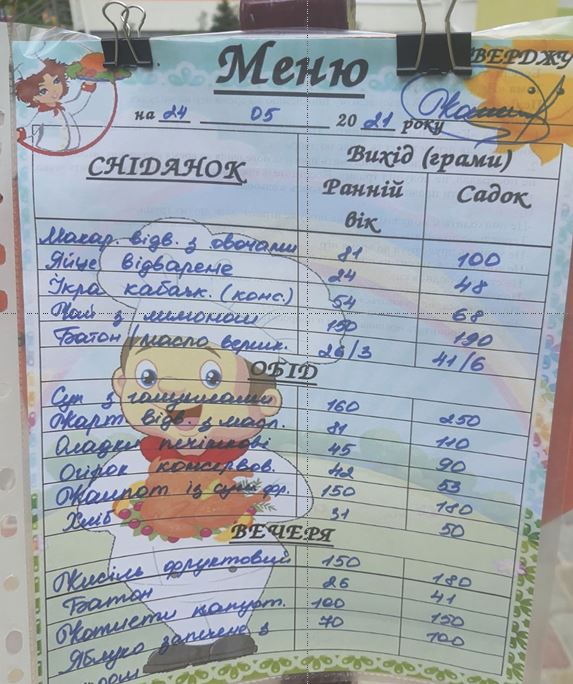 Меню
ВЕРДЖУ
на 24 05 20 21 року
СНІДАНОК Вихід (грами)
Ранній вік Садок
Макар. відв. з овочами 81 100
Яйце відварене 24 48
Ікра кабачк. (конс.) 54 68
Чай з лимоном 150 190
Батон/масло вершк. 26/3 41/6
ОБІД
Суп з галушками 160 250
Карт відв. з масл. 81 110
Оладки печінкові 45 90
Огірок консервов. 42 53
Компот із сухофр. 150 180
Хліб 31 50
ВЕЧЕРЯ
Кисіль фруктовий 150 180
Батон 26 41
Котлети капуст. 100 150
Яблуко запечене з 70 100